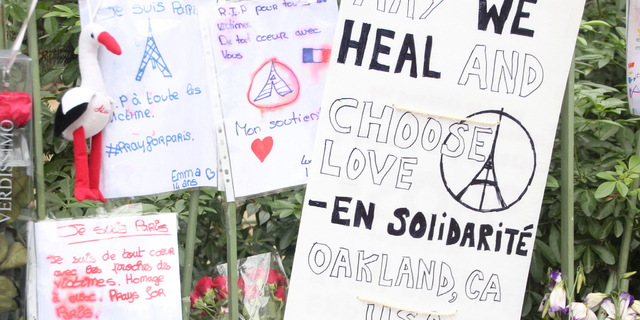 Je suis Paris.
R.P à toute les
victime.
#PRAYFORPARIS.
Emma
14 ans
R.I.P pour tout les
victimes.
De tout coeur avec
Vous
Mon soutien!
MAY WE
HEAL AND
CHOOSE
LOVE
-EN SOLIDARITÉ
OAKLAND, CA
USA
Je suis Paris
Je suis de tout cœur
avec les proches des
victimes. Homage
à eux. Prays for
Paris.
VERDISSIMO